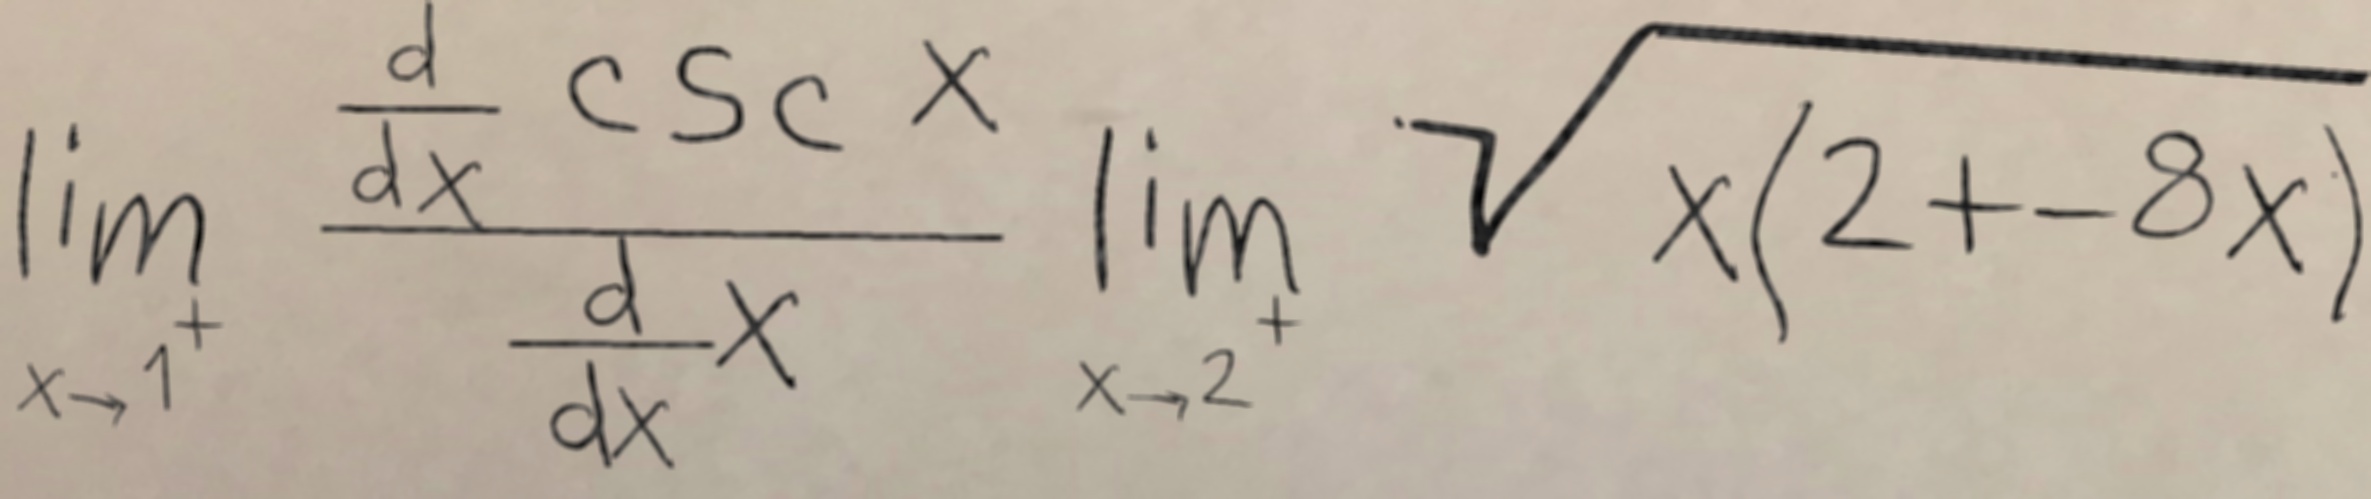 \lim_{x \to 1^+} \frac{\frac{d}{dx} \csc x}{\frac{d}{dx} x} \lim_{x \to 2^+} \sqrt{x(2+-8x)}